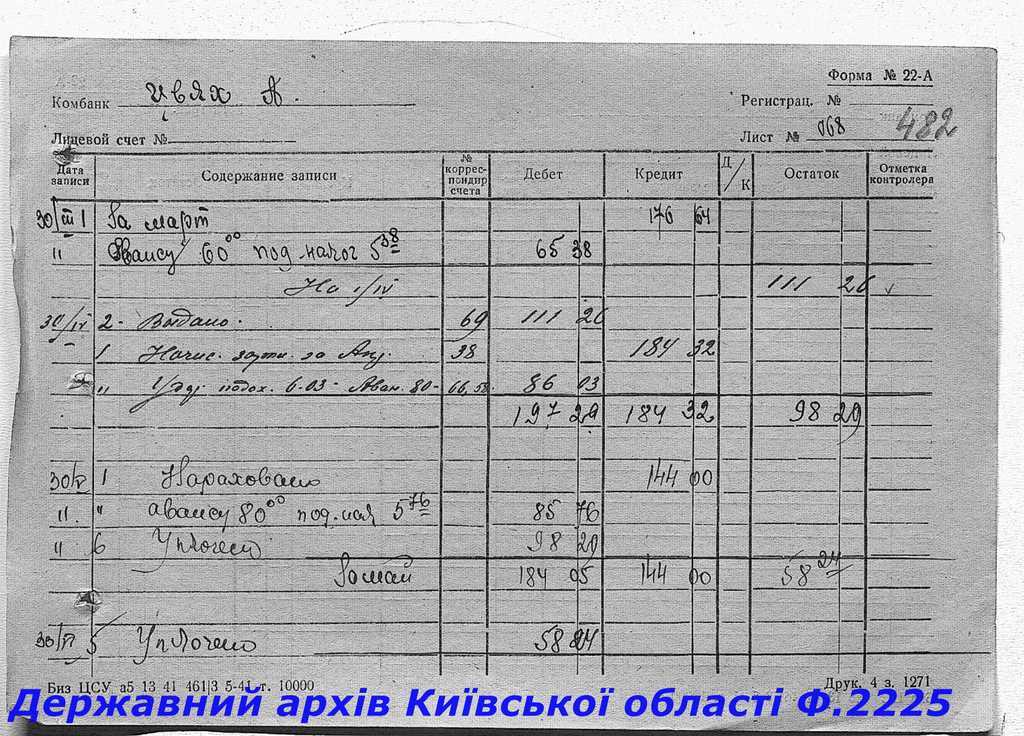 Форма № 22-А
Комбанк Цвях А.
Регистрац. №
Лицевой счет №
Лист № 068 482
Дата записи Содержание записи № коррес-пондир счета Дебет Кредит Д/К Остаток Отметка контролера
30/III 1 За март 176 64
" Авансу 60 00 под.налог 5 38 65 38
На 1/IV 111 26
30/IV 2- Выдано. 69 111 26
1 Начис. зарпл. за Апр. 38 184 32
" подох. 6-03- Аван. 80- 66, 58 86 03
197 29 184 32 98 29
30/V 1 Нараховано 144 00
" " авансу 80 00 под.нал 5 76 85 76
" 6 Уплочено 98 29
За май 184 05 144 00 58 24
30/VI 5 Уплочено 58 24
Биз ЦСУ а5 13 41 461 3 5-41 т. 10000
Друк. 4 з. 1271
Державний архів Київської області Ф.2225